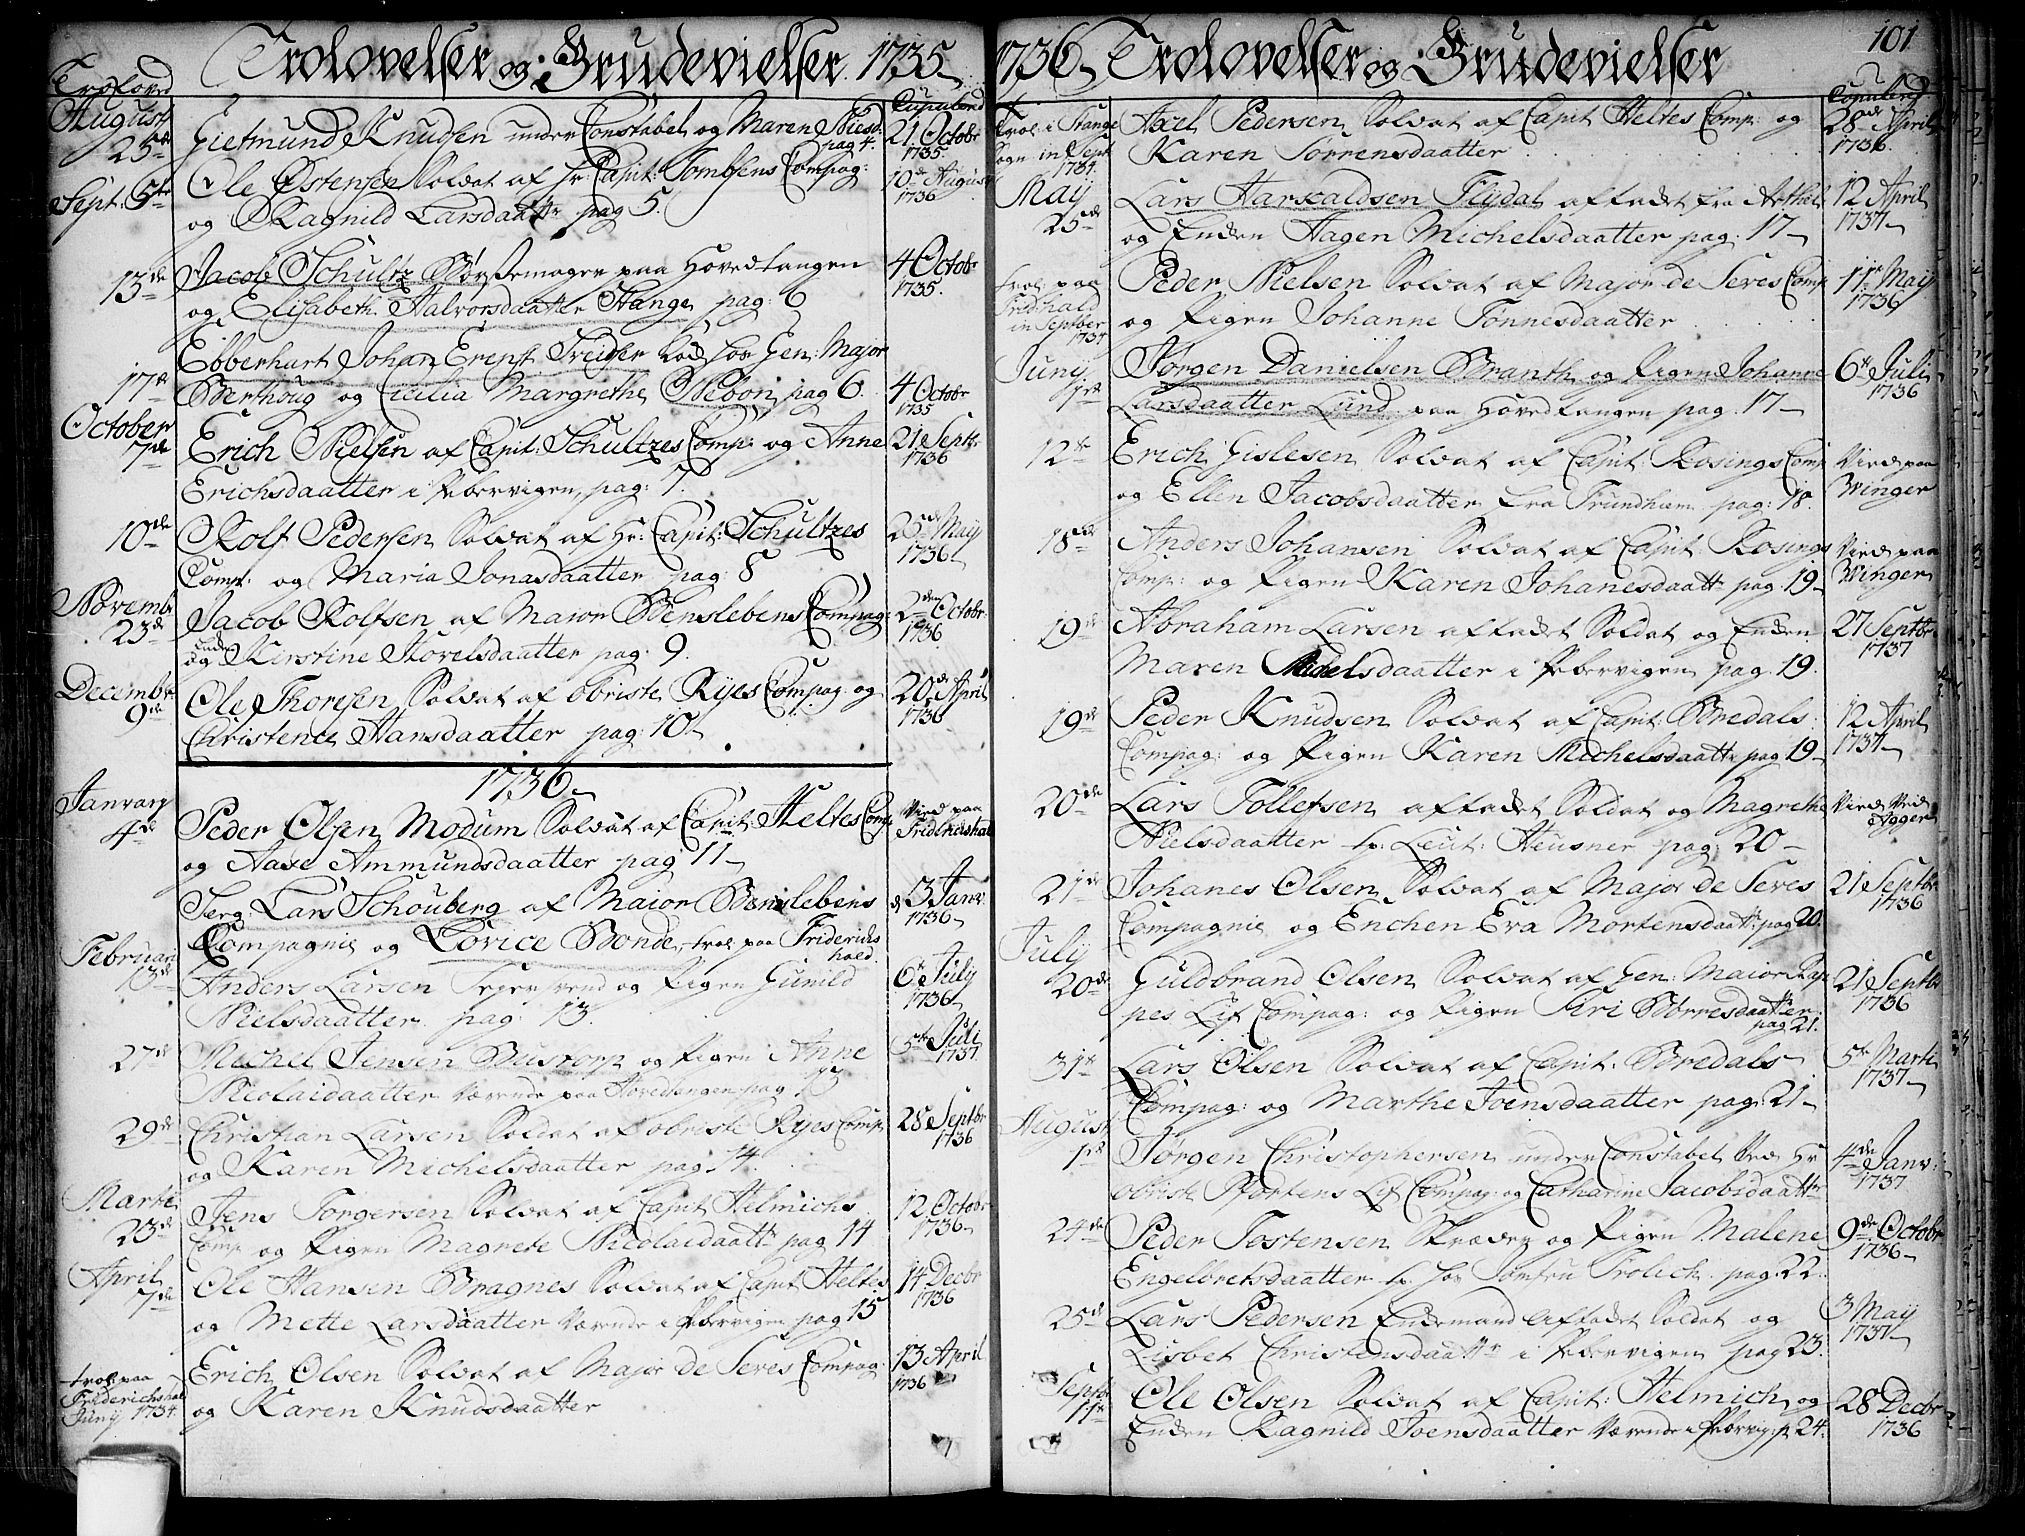 Trolovelser og Brudevielser 1735
Troloved
Copulered
August 25de Gietmund Knudsen under Constabel og Maren Niesd. pag 4. 21 Octobr 1735.
Sept: 5te Ole Østensen Soldat af Hr: Capit: Tombsens Compag: 10de August 1736
og Ragnild Larsdaatter pag 5.
13de Jacob Schultz paa Hovedtangen 4 Octobr 1735.
og Elisabeth Halvorsdaatter Stange pag: 6
Ebberhart Johan Ernst Treider hos Gen: Major
17de Berthoug og Cecilia Margrethe pag 6. 4 Octobr 1735
October 7de Erich Nielsen af Capit: Schultzes Comp: og Anne 21 Septbr 1736
Erichsdaatter i Pebervigen, pag: 7.
10de Rolf Pedersen Soldat af Hr: Capit: Schultzes 25de Maij 1736
Comp: og Maria Jonasdaatter pag 8
Novemb 23de Jacob Rolfsen af Major Benslebens Compag: 2den Octobr 1736.
og Enden Kirstine Torelsdaatter pag: 9.
Decembr: 9de Ole Thoresen Soldat af Obriste Rÿes Compag: og 20de April 1736
Christence Hansdaatter pag: 10
1736
Januarÿ 4de Peder Olsen Modum Soldat af Capit: Heltes Comp: Vied paa Fridrichshal
og Aase Ammundsdaatter pag 11
Serg: Lars Schouberg af Maior Benslebens d 13 Janv: 1736
Compagnie og Lovice Bonde, trol paa Friderichs hald.
Februari 13de Anders Larsen og Pigen Gunild 6te Julÿ 1736
Nielsdaatter pag: 13.
27de Michel Jensen Bustorp og Pigen Anne 5te Juli 1737.
Nicolaidaatter Værende paa Hovedtangen pag 13
29de Christian Larsen Soldat af Obriste Rÿes Comp: 28 Septbr 1736
og Karen Michelsdaatter pag 14.
Marti 23de Jens Torgersen Soldat af Capit Helmichs 12 Octobr 1736
Comp og Pigen Magnete Nicolaidaatt: pag 14
April 7de Ole Hansen Bragnes Soldat af Capit Heltes 14 Decbr 1736
og Mette Larsdaatter Værende i Pebervigen pag 15
trol: paa Friderichshal Junÿ 1734. Erich Olsen Soldat af Major de Seres Compag: 13 April 1736
og Karen Knudsdaatter
1736 Trolovelser og Brudevielser 101
Copulered
Trol: i Stange Sogn in Sept 1734. Axel Pedersen Soldat af Capit Heltes Comp: og 28de April 1736
Karen Sørrensdaatter
Maÿ 25de Lars Harxaldsen Flÿdal affadet fra Arthel 12 April 1737
og Enden Hagen Michelsdaatter pag: 17
trol: paa Fridhald in Septber 1734 Peder Nielsen Soldat af Major de Seres Comp 11te Maÿ 1736
og Pigen Johanne Tønnesdaatter
Junÿ 1ste Jørgen Danielsen Branth og Pigen Johanne 6te Juli 1736
Larsdaatter Lund paa Hovedtangen pag: 17
12te Erich Gislesen Soldat af Capit: Rosings Comp Vied paa Winger
og Ellen Jacobsdaatter fra Trundhiem pag: 18.
18de Anders Johansen Soldat af Capit: Rosings Vied paa Winger
Comp: og Pigen Karen Johanesdaatt: pag: 19
19de Abraham Larsen affadet Soldat og Enden 27 Septbr 1737
Maren Michelsdaatter i Pebervigen pag: 19.
19de Peder Knudsen Soldat af Capit: Bredals 12 April 1737
Compag: og Pigen Karen Michelsdaatt: pag 19
20de Lars Tollefsen affadet Soldat og Magrethe Vied Ved Agger
Nielsdaatter Lieut: Heusner pag: 20
21de Johanes Olsen Soldat af Major de Seres 21 Septbr 1736
Compagnie og Enchen Eva Mortensdaatt: pag 20.
Julÿ 20de Guldbrand Olsen Soldat af Gen: Maior Rap 21 Septbr 1736
pes Lif Compag: og Pigen Siri Børresdaatter pag 21.
31te Lars Olsen Soldat af Capit: Bredals 5te Marti 1737
Compag: og Marthe Joensdaatter pag: 21
August 1ste Jørgen Christophersen under Constabel Ved Hr 4de Janv: 1737
obriste Lif Compag: og Catharine Jacobsdaatter
24de Peder Tostensen Skræder og Pigen Malene 9de Octobr 1736
Engelbretsdaatter hos Jomfru Frolich pag: 22
25de Lars Pedersen Enckemand Affadet Soldat og 3 Maÿ 1737
Lisbet Christensdaatter i Pebervigen pag 23.
Septbr 11te Ole Olsen Soldat af Capit: Helmich og 28 Decbr 1736
Enden Ragnild Joensdaatter Værende i Pebervig: p. 24.